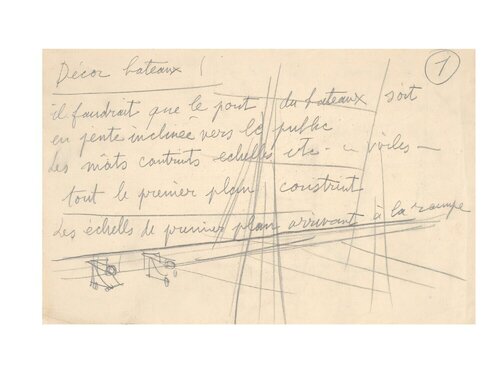 Décor bateaux !
1
il faudrait que le pont du bateaux soit
en pente inclinée vers le public
les mâts construits echelles etc - voiles -
tout le premier plan construit
Les échells de premier plan arrivant à la rampe